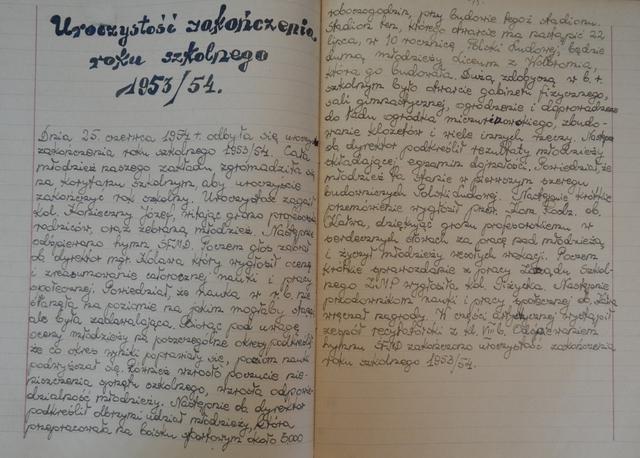 Uroczystość zakończenia
roku szkolnego
1953/54.
Dnia 25 czerwca 1954 r. odbyła się
zakończenia roku szkolnego 1953/54. Cała
młodzież naszego zakładu zgromadziła się
na korytarzu szkolnym, aby uroczyście
zakończyć rok szkolny. Uroczystość zagaił
kol. Konieczny Józef, witając grono profesorów
rodziców, oraz zebraną młodzież. Następnie
odśpiewano hymn ŚFMD. Poczem głos zabrał
ob. dyrektor mgr. który wygłosił ocenę
i zreasumowanie całorocznej nauki i pracy
społecznej. Powiedział, że nauka w r. b. nie
stanęła na poziomie na jakim mogłaby stanąć
ale była zadawalająca. Biorąc pod uwagę
oceny młodzieży na poszczególne okresy podkreślił
że co okres wyniki poprawiały się, poziom nauki
podwyższał się. Również wzrosło poczucie nie-
niszczenia sprzętu szkolnego, wzrosła odpowie-
dzialność młodzieży. Następnie ob. dyrektor
podkreślił olbrzymi udział młodzieży, która
przepracowała na boisku sportowym około 5000
roboczogodzin, przy budowie tegoż stadionu.
Stadion ten, którego otwarcie ma nastąpić 22
lipca, w 10 rocznicę Polski Ludowej, będzie
dumą młodzieży Liceum z Wolbromia,
która go budowała. Dużą zdobyczą w b. r.
szkolnym było otwarcie gabinetu fizycznego,
sali gimnastycznej, ogrodzenie i doprowadzenie
do ładu ogródka miczurinowskiego, zbudo-
wanie klozetów i wiele innych rzeczy. Następnie
ob. dyrektor podkreślił rezultaty młodzieży
składającej egzamin dojrzałości. Powiedział, że
młodzież ta stanie w pierwszym szeregu
budowniczych Polski Ludowej. Następnie krótkie
przemówienie wygłosił Przew. Kom. Rodz. ob.
dziękując gronu profesorskiemu w
serdecznych słowach za pracę nad młodzieżą,
i życzył młodzieży wesołych wakacji. Poczem
krótkie sprawozdanie z pracy Zarządu Szkol-
nego ZMP wygłosiła kol. Następnie
przodownikom nauki i pracy społecznej ob.
wręczał nagrody. W części artystycznej wystąpił
zespół recytatorski z kl. Odśpiewaniem
hymnu ŚFMD zakończono uroczystość zakończenia
roku szkolnego 1953/54.